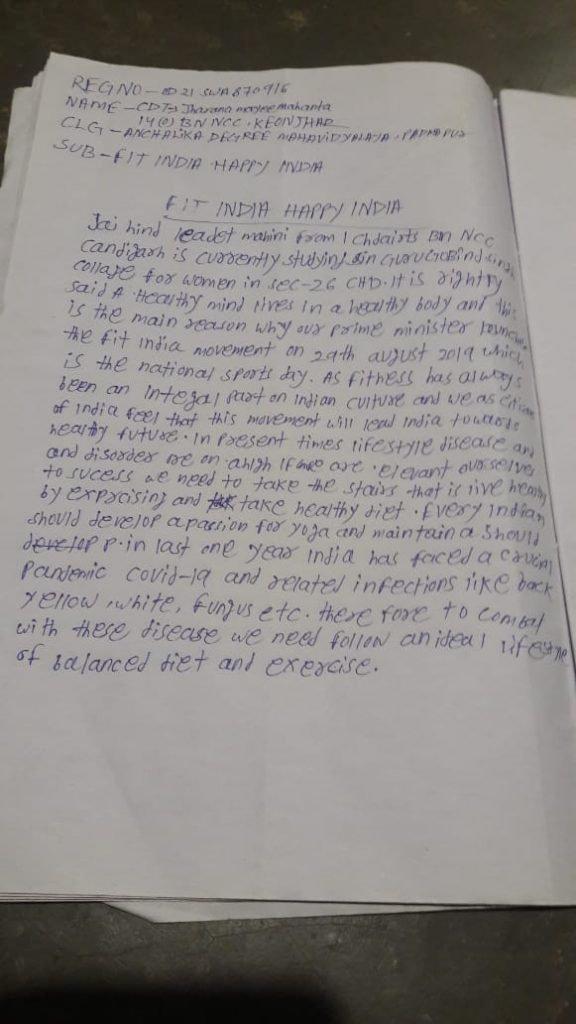 REGNO - OD 21 SWA 870916
NAME - CDT Jharana manjaree mahanta
14 (O) BN NCC, KEONJHAR
CLG - ANCHALIKA DEGREE MAHAVIDYALAYA, PADMAPUR
SUB - FIT INDIA HAPPY INDIA
FIT INDIA HAPPY INDIA
Jai hind leadet mahini from 1 BN NCC
Candigarh is currently studying in Guru Gobind singh
collage for women in sec-26 CHD. It is rightly
said A Healthy mind lives in a healthy body and this
is the main reason why our prime minister
the fit india movement on 29th august 2019 which
is the national sports day. As fitness has always
been an integal part on indian culture and we as
of india feel that this movement will lead india towards
healthy future. In present times lifestyle disease and
and disorder are on are elevant ourselves
to sucess we need to take the stairs that is live
by exprcising and take healthy diet. Every indian
should develop a passion for yoga and maintain a should
develop p. in last one year india has faced a
Pandemic covid-19 and related infections like back
yellow, white, fungus etc. there fore to combat
with these disease we need follow an ideal
of balanced diet and exercise.